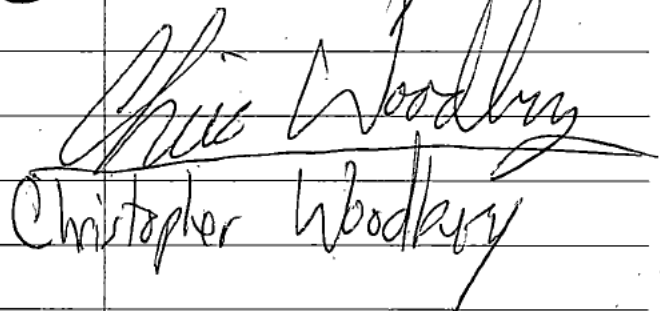 Chris Woodbury
Christopher Woodbury